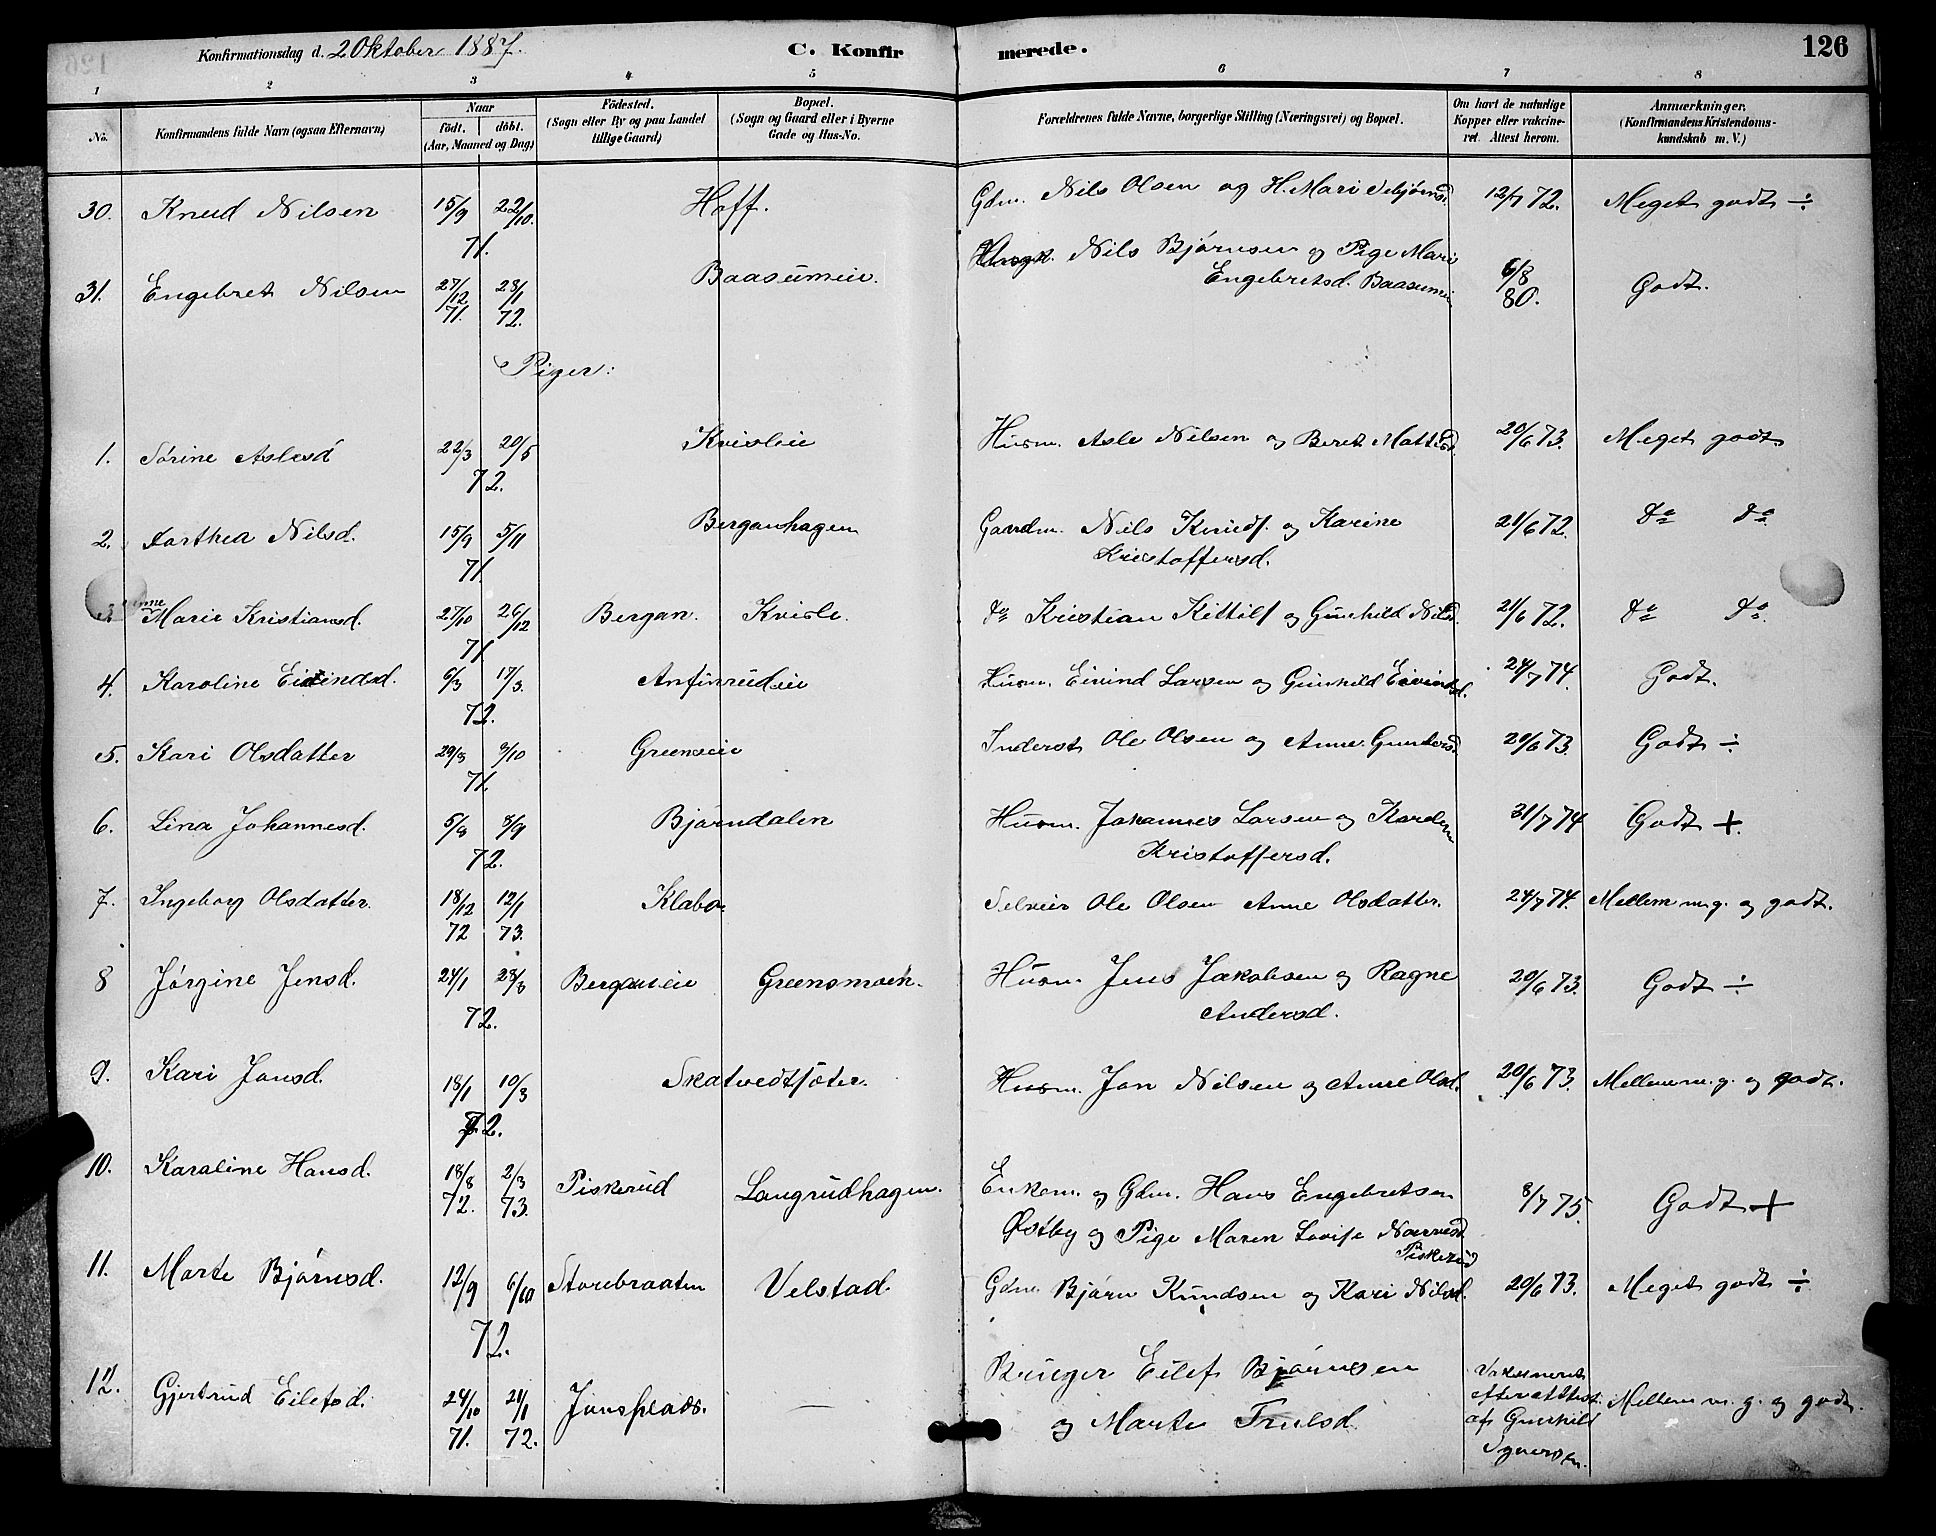 Konfirmationsdag d. 2 Oktober 1887. C. Konfirmerede. 126
1 2 3 4 5 6 7 8
No. Konfirmandens fulde Navn (ogsaa Efternavn) Naar født. døbt. (Aar, Maaned og Dag) Fødested. (Sogn eller By og paa Landet tillige Gaard) Bopæl. (Sogn og Gaard eller i Byerne Gade og Hus-No. Forældrenes fulde Navne, borgerlige Stilling (Næringsvei) og Bopæl. Om havt de naturlige Kopper eller vakcineret. Attest herom. Anmærkninger. (Konfirmandens Kristendomskundskab m. V.)
30. Knud Nilsen 15/9 22/10. 71. Hoff. Gdm. Nils Olsen og H. Mari 12/7 72. Meget godt ÷
31. Engebret Nilsen 27/12 71. 28/1 72. Baasumeie. Ungk. Nils Bjørnsen og Pige Mari
Engebretsd. Baasumei 6/8 80. Godt.
Piger:
1. Sørine Aslesd 22/3 20/5 72. Kvisleie Husm. Asle Nilsen og Beret Mattisd. 20/6 73. Meget godt
2. Dorthea Nilsd. 15/9 5/11 71. Berganhagen Gaardm. Nils Knuds. og Karine
Kristoffersd. 21/6 72. do do
3. Anne Marie Kristiansd. 27/10 26/12 71. Bergan. Kvisle. do Kristian Kittils. og Gunhild Nilsd. 21/6 72. do do
4. Karoline Eivindsd. 6/3 17/3. 72. Anfinrudeie Husm. Eivind Larsen og Gunhild Eivindsd. 24/7 74. Godt.
5. Kari Olsdatter 29/8 9/10 71. Greenseie Inderst Ole Olsen og Anne Gundersd. 20/6 73 Godt ÷
6. Lina Johannesd. 5/8 8/9 72. Bjørndalen Husm. Johannes Larsen og Karolen
Kristoffersd. 31/7 74 Godt +.
7. Ingeborg Olsdatter. 18/12 72 12/1 73. Klabo Selveier Ole Olsen Anne Olsdatter. 24/7 74. Mellem m.g. og godt.
8 Jørgine Jensd. 24/1 23/3 72. Berganeie Greensmoen. Husm. Jens Jakobsen og Ragne
Andersd. 20/6 73. Godt ÷
9. Kari Jonsd. 18/1 10/3 72. Skatvedtsæter. Husm. Jon Nilsen og Anne Olsd. 20/6 73. Mellem m. g. og godt.
10. Karaline Hansd. 18/8 72. 2/3 73. Piskerud Langrudhagen. Enkem. og Gdm. Hans Engebretsen
Østby og Pige Maren Lovise Narvesd.
Piskerud 8/7 75. Godt +
11. Marte Bjørnsd. 12/9 6/10 72. Storebraaten Velstad Gdm. Bjørn Knudsen og Kari Nilsd. 20/6 73. Meget godt ÷
12. Gjertrud Eilefsd. 24/10 71. 21/1 72. Jonsplads. — Bruger Eilef Bjørnsen
og Marte Trulsd. Vakcineret
efter attest
af Gunhild
Syversen. Mellem m. g. og godt.